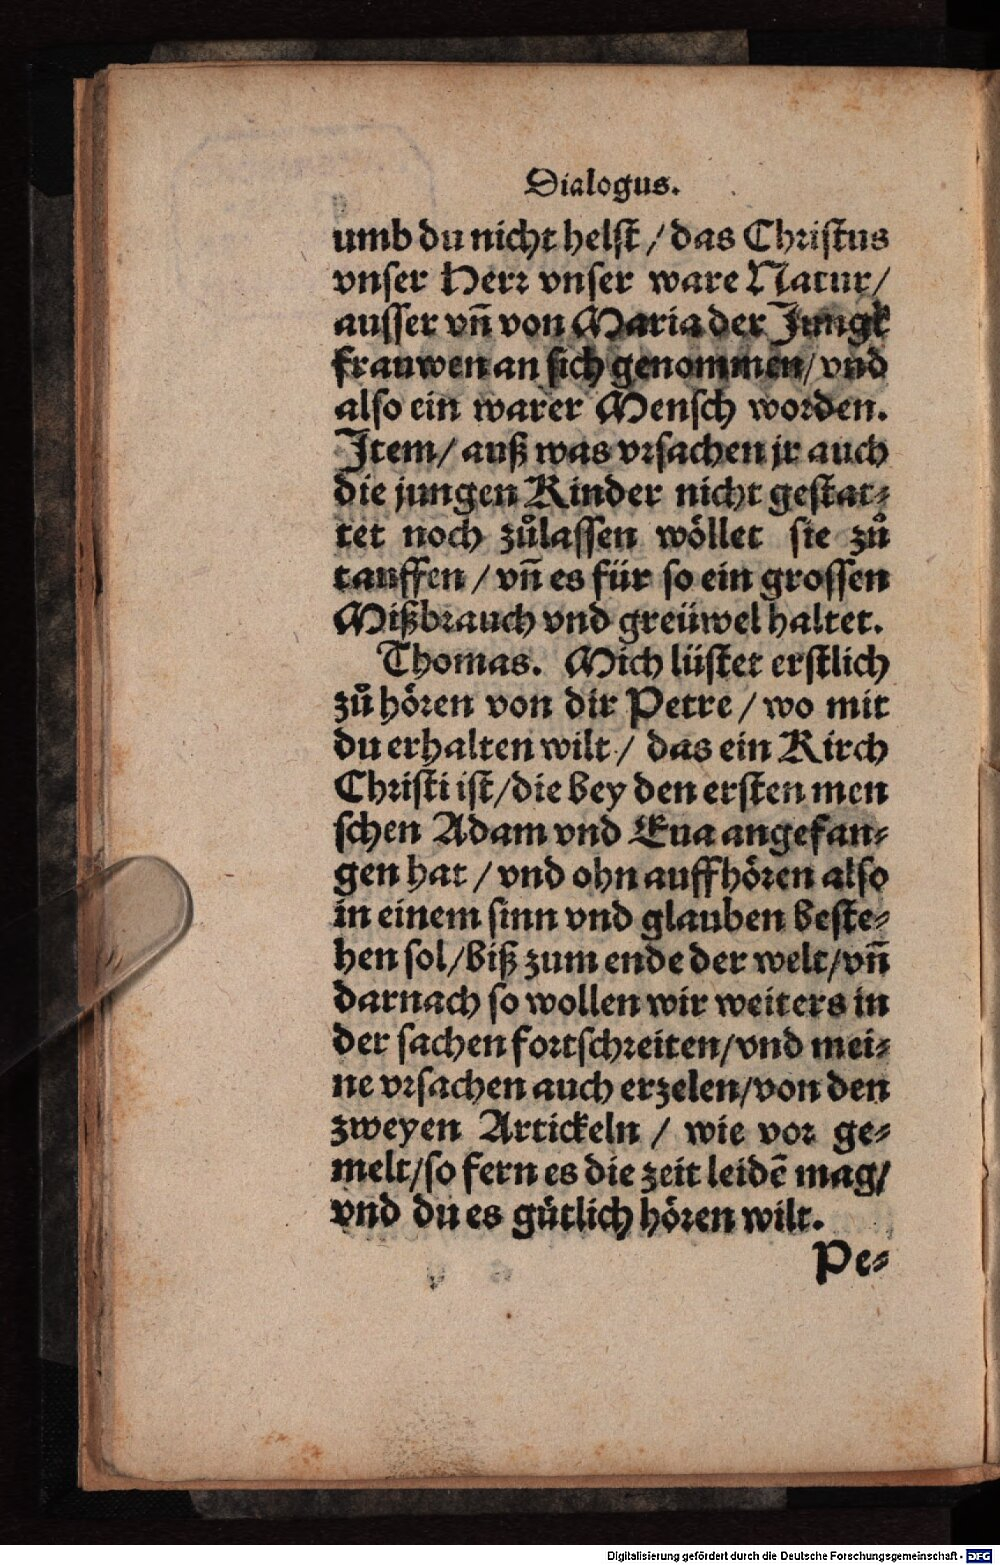 Dialogus.
umb du nicht helst / das Christus
vnser Herr vnser ware Natur /
ausser vñ von Maria der Jungk
frauwen an sich genommen / vnd
also ein warer Mensch worden.
Item / auß was vrsachen jr auch
die jungen Kinder nicht gestat⸗
tet noch zůlassen wöllet sie zů
tauffen / vñ es für so ein grossen
Mißbrauch vnd greüwel haltet.
Thomas. Mich lüstet erstlich
zů hören von dir Petre / wo mit
du erhalten wilt / das ein Kirch
Christi ist / die bey den ersten men
schen Adam vnd Eua angefan⸗
gen hat / vnd ohn auffhören also
in einem sinn vnd glauben beste⸗
hen sol / biß zum ende der welt / vñ
darnach so wollen wir weiters in
der sachen fortschreiten / vnd mei⸗
ne vrsachen auch erzelen / von den
zweyen Artickeln / wie vor ge⸗
melt / so fern es die zeit leidē mag /
vnd du es gütlich hören wilt.
Pe⸗
Digitalisierung gefördert durch die Deutsche Forschungsgemeinschaft - DFG